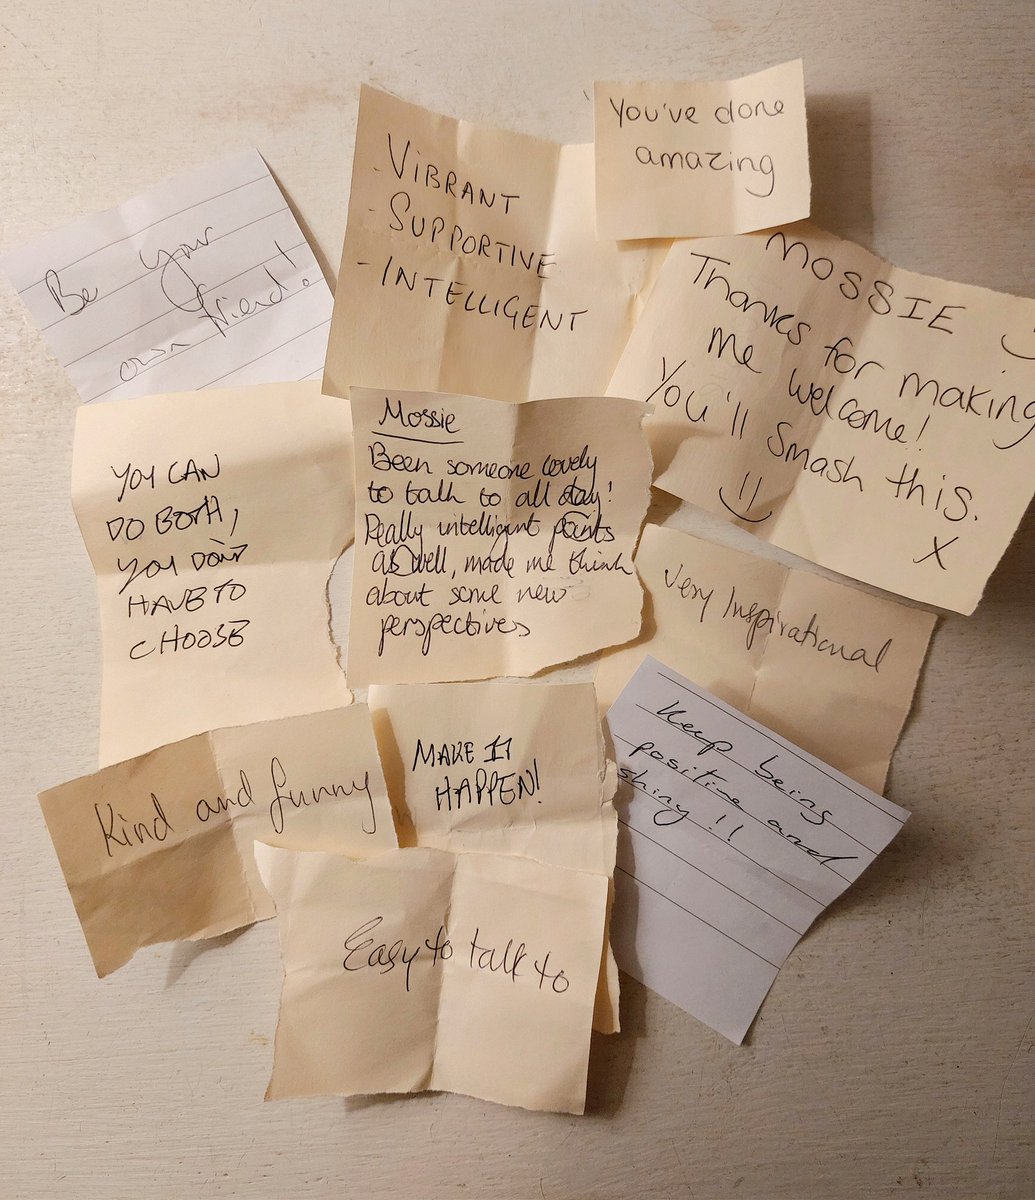 You've done
amazing
- VIBRANT
- SUPPORTIVE
- INTELLIGENT
Be your
own friend!
MOSSIE
Thanks for making
me welcome!
You'll smash this.
X
Mossie
Been someone lovely
to talk to all day!
Really intelligent points
as well, made me think
about some new
perspectives
YOU CAN
DO BOTH,
YOU DON'T
HAVE TO
CHOOSE
Very Inspirational
Keep being
positive and
shiny!!
MAKE IT
HAPPEN!
Kind and funny
Easy to talk to